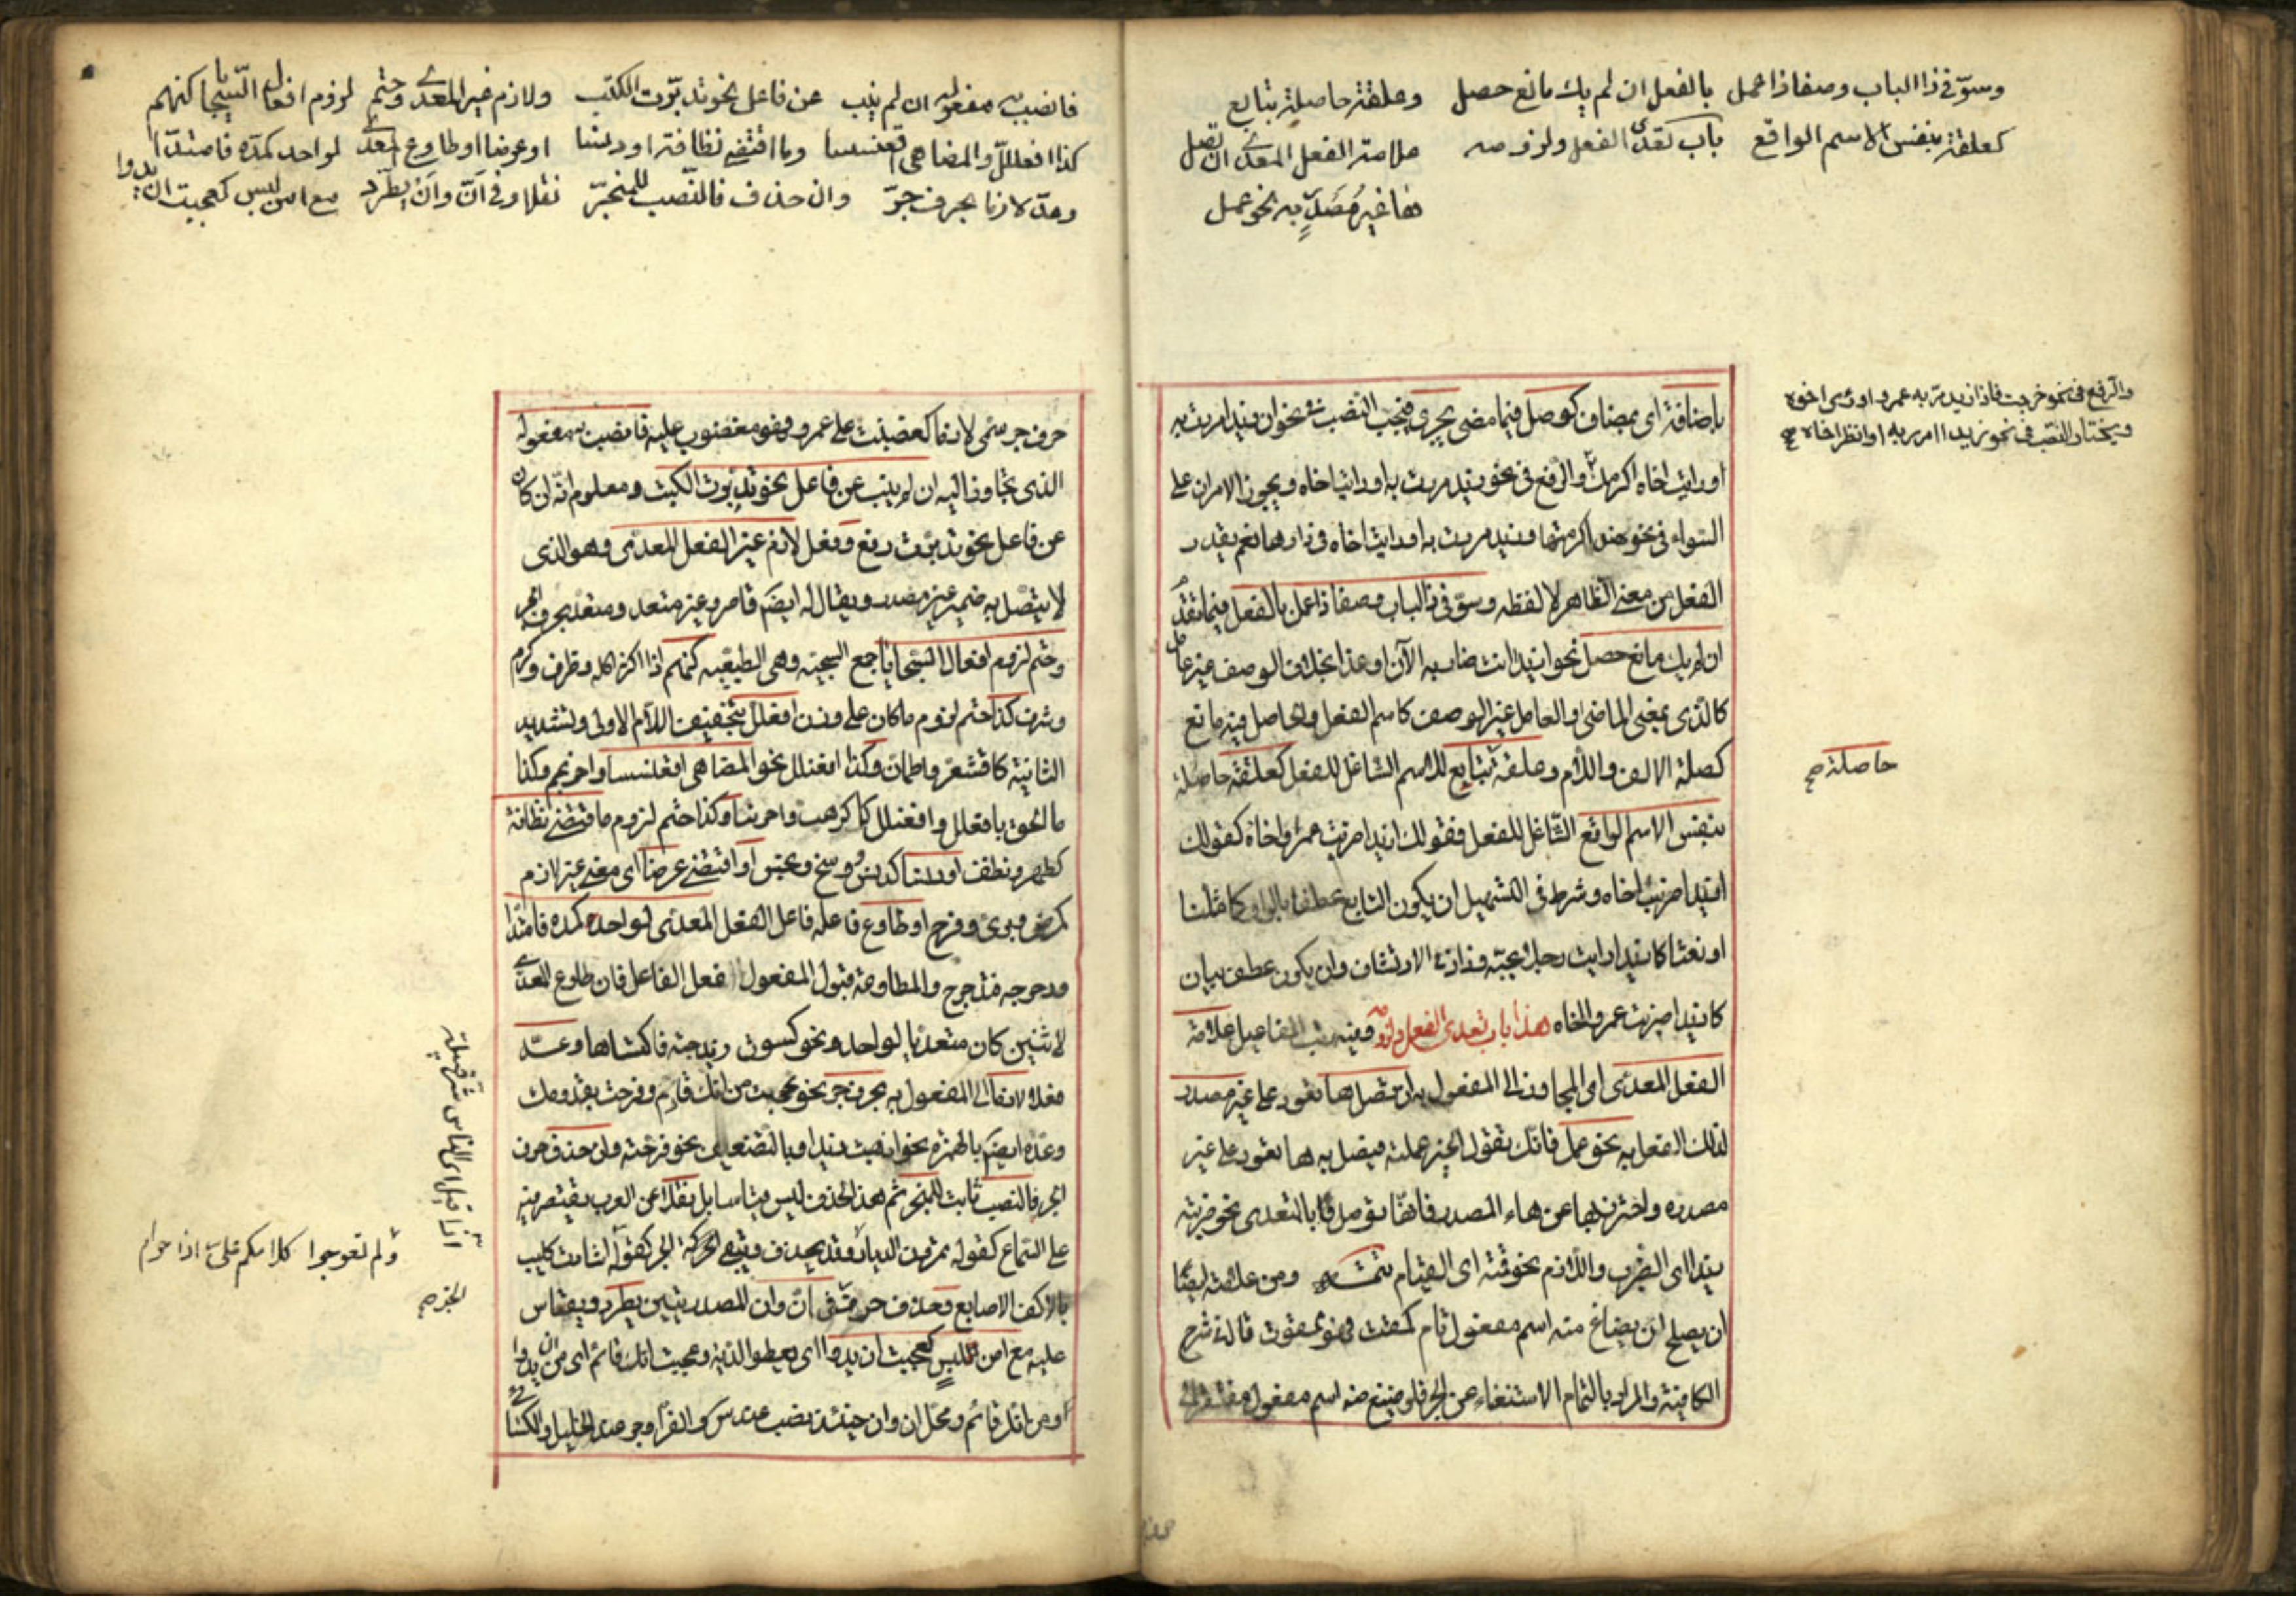 وسوّ في ذا الباب وصفا ذا عمل بالفعل ان لم يك مانع حصل وعلقة حاصلة بتابع
كعلقة بنفس الاسم الواقع باب تعدى الفعل ولزومه علامة الفعل المعدى ان تصل
ها غير مصدر به نحو عمل
والرفع في نحو خرجت فاذا زيد مر به عمرو او
ويختار النصب في نحو زيدا امرر به او انظر اخاه صح
باضافة اى بمضاف كوصل فيما مضى يجرى فيجب النصب نحو ان زيدا مررت به
او رايت اخاه اكرمك والرفع في نحو زيد مررت به او رايت اخاه ويجوز الامران على
السواء في نحو هند اكرمتها وزيد مررت به او رايت اخاه في دارها نعم يقدر
الفعل من معنى الظاهر لا لفظه وسوّ في ذا الباب وصفا ذا عمل بالفعل فيما تقدم
ان لم يك مانع حصل نحو ازيدا انت ضاربه الآن او غدا بخلاف الوصف غير عامل
كالذى بمعنى الماضى والعامل غير الوصف كاسم الفعل والحاصل فيه مانع
كصلة الالف واللام وعلقة بتابع للاسم الشاغل للفعل كعلقة حاصلة
حاصلة صح
بنفس الاسم الواقع الشاغل للفعل فقولك ازيدا ضربت عمرا واخاه كقولك
ازيدا ضربت اخاه وشرط في التسهيل ان يكون التابع عطفا بالواو كما مثلنا
او نعتا كازيدا رايت رجلا يحبه وزاد في الارتشاف وان يكون عطف بيان
كازيدا ضربت عمروا اخاه هذا باب تعدى الفعل ولزومه وفيه رتب المفاعيل علامة
الفعل المعدى اى المجاوز الى المفعول به ان تصل ها تعود على غير مصدر
لذلك الفعل به نحو عمل فانك تقول الخير عملته فيصل به ها تعود على غير
مصدره واحترز بها عن هاء المصدر فانها توصل بالمتعدى نحو ضربته
زيدا اى الضرب واللازم نحو قمته اى القيام تتمة ومن علامته ايضا
ان يصلح ان يصاغ منه اسم مفعول تام كمقت فهو ممقوت قال في شرح
الكافية والمراد بالتمام الاستغناء عن حرف الجر فلو صيغ منه اسم مفعول مفتقر الى
فانصب به مفعوله ان لم ينب عن فاعل نحو تدبرت الكتب ولازم غير المعدى وحتم لزوم افعال السجايا كنهم
كذا افعلل والمضاهى اقعنسسا وما اقتضى نظافة او دنسا او عرضا او طاوع المعدى لواحد كمده فامتدا
وعدّ لازما بحرف جرّ وان حذف فالنصب للمنجرّ نقلا وفي أنّ وأن يطّرد مع امن لبس كعجبت ان يدوا
حرف جر سمى لازما كغضبت على عمرو فهو مغضوب عليه فانصب به مفعوله
الذى تجاوز اليه ان لم ينب عن فاعل نحو تدبرت الكتب ومعلوم انه ان كان
عن فاعل نحو تدبرت رفع وفعل لازم غير الفعل المعدى وهو الذى
لا يتصل به ضمير غير مصدر ويقال له ايضا قاصر وغير متعد ومتعد بحرف جر
وحتم لزوم افعال السجايا جمع السجية وهى الطبيعة كنهم اذا كثر اكله وظرف وكرم
وشرف كذا حتم لزوم ما كان على وزن افعلل بتخفيف اللام الاولى وتشديد
الثانية كاقشعر واطمأن وكذا افعنلل نحو المضاهى اقعنسسا واحرنجم وكذا
ما الحق بافعلل وافعنلل كاكوهد واحرنبا وكذا حتم لزوم ما اقتضى نظافة
كطهر ونظف او دنسا كدنس ووسخ ونجس او اقتضى عرضا اى معنى غير لازم
كمرض وبرئ وفرح او طاوع فاعله فاعل الفعل المعدى لواحد كمده فامتدا
ودحرجه فتدحرج والمطاوعة قبول المفعول الفعل الفاعل فان طاوع المعدى
لاثنين كان متعديا لواحد ونحو كسوت زيدا جبة فاكتساها وعدّ
فعلا لازما الى المفعول به بحرف جر نحو عجبت من انك قادم وفرحت بقدومك
وعده ايضا بالهمزة نحو اذهبت زيدا وبالتضعيف نحو فرحته وان حذف حرف
الجر فالنصب ثابت للمنجر ثم هذا الحذف ليس قياسا بل نقلا عن العرب يقتصر فيه
على السماع كقوله تمرون الديار وقد يحذف ويبقى الجر كقوله اشارت كليب
بالاكف الاصابع وحذف حرف الجر في أنّ وأن المصدريتين يطرد ويقاس
عليه مع امن اللبس كعجبت ان يدوا اى يعطوا الدية وعجبت انك قائم اى من ان يدوا
او من انك قائم ومحل ان وان حينئذ نصب عند س والفراء وجر عند الخليل والكسائى
اذا قيل اى الناس شر قبيلة
ولم تعوجوا كلامكم على اذا حرام
الجر صح